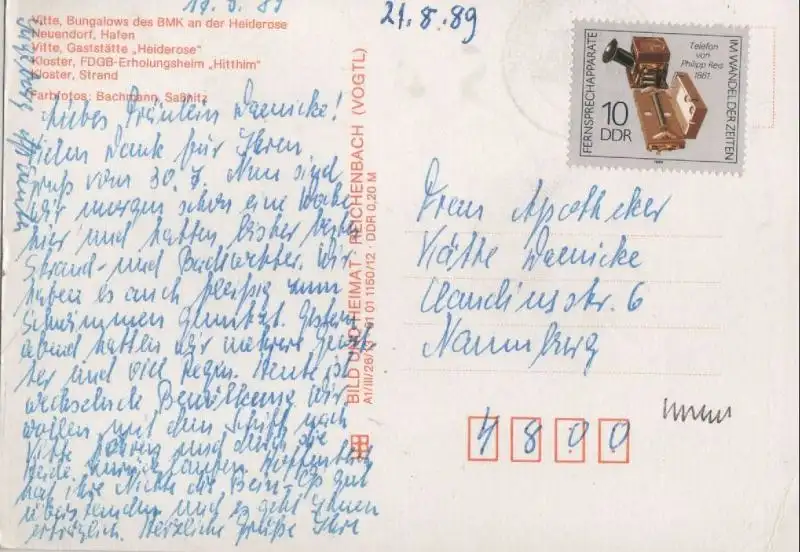 19.8.89
Vitte, Bungalows des BMK an der Heiderose
Neuendorf, Hafen
Vitte, Gaststätte „Heiderose“
Kloster, FDGB-Erholungsheim „Hitthim“
Kloster, Strand
Farbfotos: Bachmann, Saßnitz
Liebes Fräulein Daenicke!
Vielen Dank für Ihren
Gruß vom 30. 7. Nun sind
wir morgen schon eine Woche
hier und hatten bisher bestes
Strand- und Badewetter. Wir
haben es auch fleißig zum
Schwimmen genutzt. Gestern
abend hatten wir mehrere Gewit-
ter und viel Regen. Heute ist
wechselnde Bewölkung. Wir
wollen mit dem Schiff nach
Vitte fahren und durch die
Heide zurücklaufen. Hoffentlich
hat ihre Nichte die Bein-Op gut
überstanden und es geht Ihnen
erträglich. Herzliche Grüße Ihre
BILD UND HEIMAT · REICHENBACH (VOGTL)
01 01 1150/12 · DDR 0,20 M
21.8.89
FERNSPRECHAPPARATE
IM WANDEL DER ZEITEN
Telefon
von
Philipp Reis
1861
10
DDR
Frau Apotheker
Käthe Daenicke
Claudiusstr. 6
Naumburg
4800